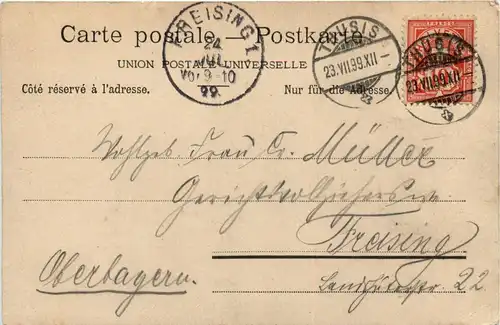 Carte postale — Postkarte
UNION POSTALE UNIVERSELLE
Côté réservé à l'adresse.
Nur für die Adresse.
FREISING 1
24
JUL
Vor 9-10
99.
THUSIS
23.VII.99.XII
THUSIS
23.VII.99.XII
Wohlgeb. Frau Cr. Müller
Gerichtsvollziehers
Freising
Oberbayern.
Landshuterstr 22